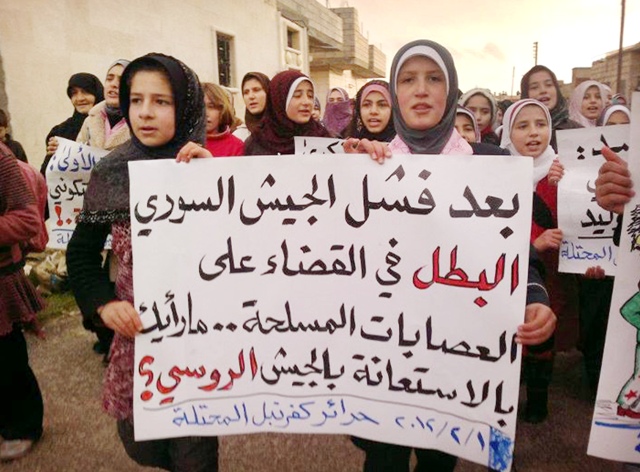 بعد فشل الجيش السوري
البطل في القضاء على
العصابات المسلحة .. ما رأيك
بالاستعانة بالجيش الروسي ؟
حرائر كفرنبل المحتلة
٢٠١٢/٢/١
الأولى
المحتلة